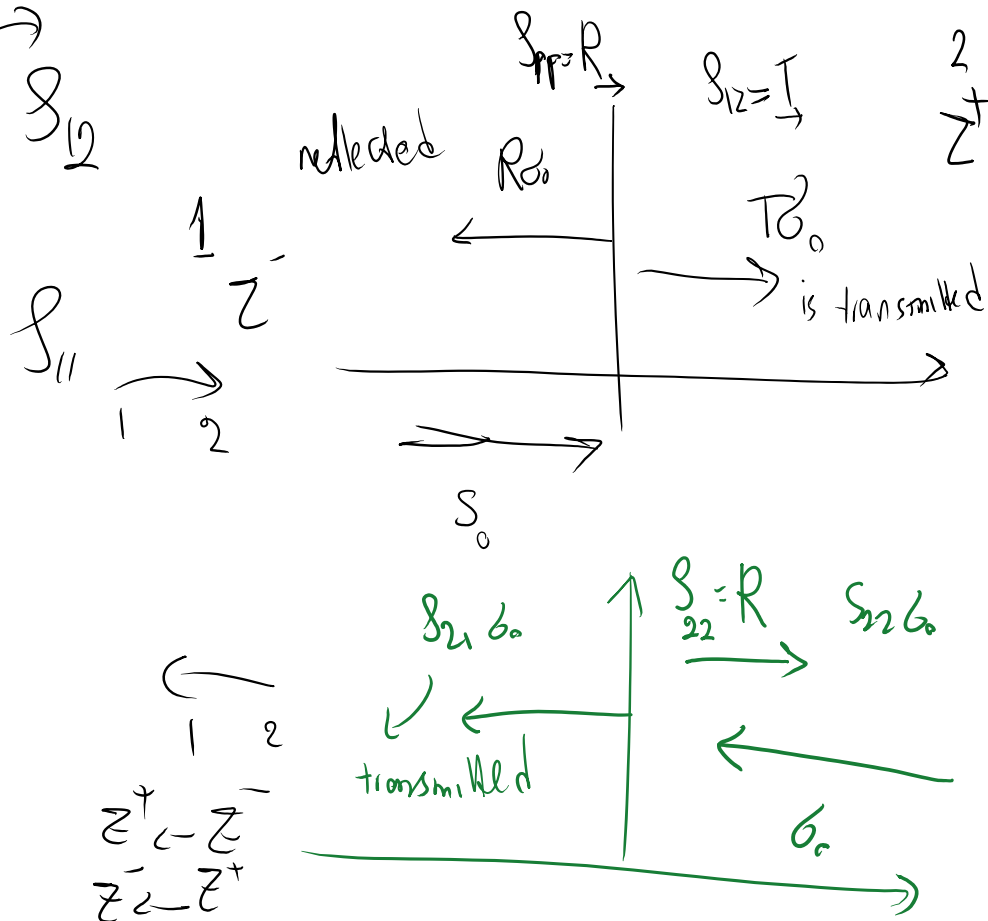 S₁₂
Spp=R
S₁₂=T
2
Z⁺
reflected
Rσ₀
1
Z⁻
Tσ₀
is transmitted
S₁₁
1 2
S₀
S₂₁ σ₀
S₂₂=R
S₂₂ σ₀
1 2
transmitted
Z⁺ ← Z⁻
σ₀
Z⁻ ← Z⁺